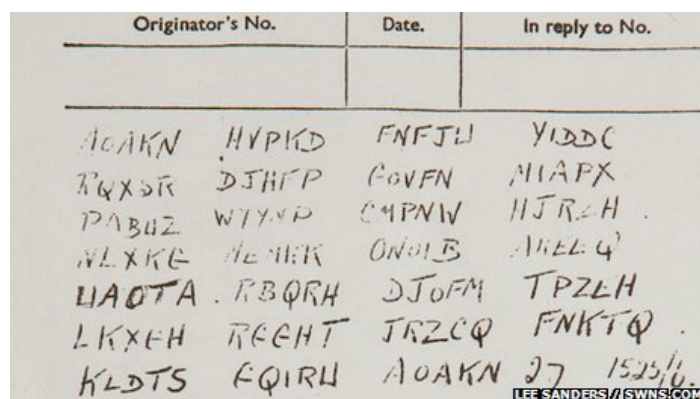 Originator's No. Date. In reply to No.
AOAKN HVPKD FNFJW YIDDC
RQXSR DJHFP GOVFN MIAPX
PABUZ WYYNP CMPNW HJRZH
NLXKG MEMKK ONOIB AKEEQ
WAOTA RBQRH DJOFM TPZEH
LKXGH RGGHT JRZCQ FNKTQ
KLDTS FQIRW AOAKN 27 1525/6.
LEE SANDERS // SWNS.COM